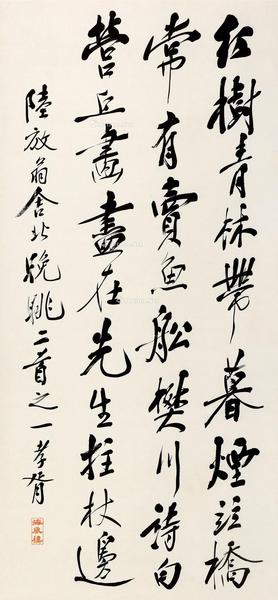 紅樹青林帶暮煙並橋
常有賣魚船樊川詩句
營丘畫盡在先生拄杖邊
陸放翁舍北晚眺二首之一孝胥